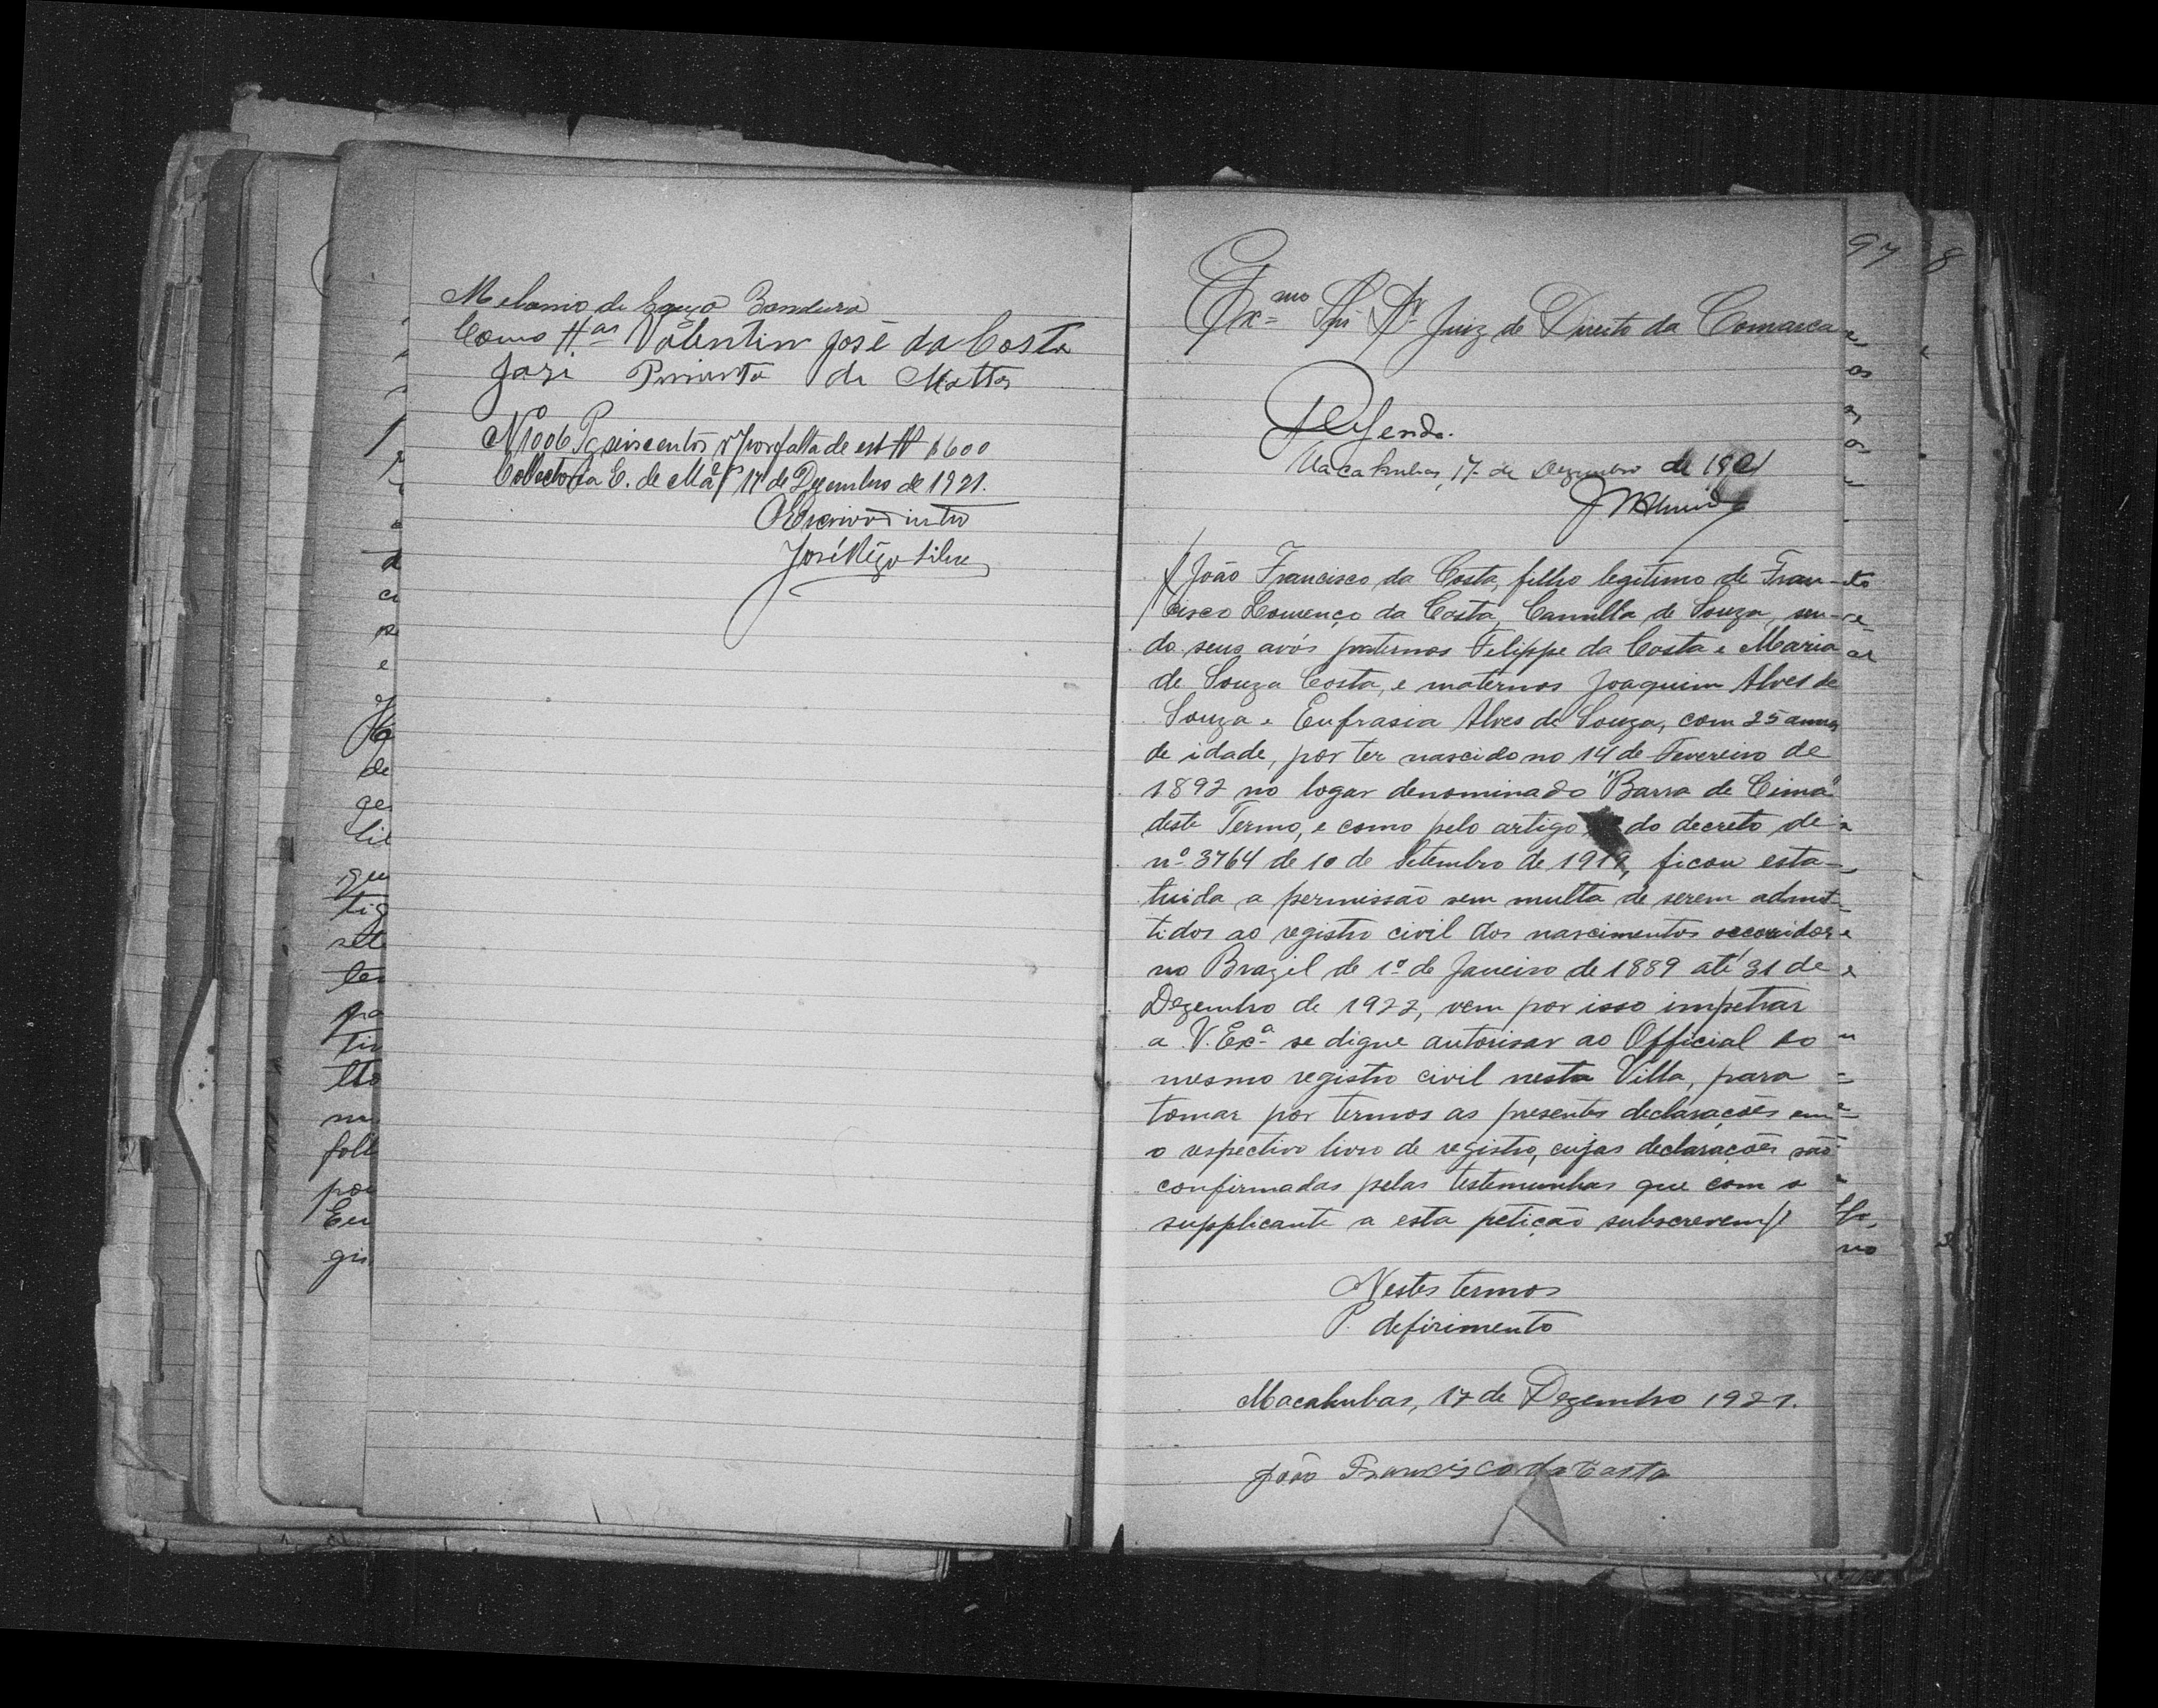 Melanio de Souza Bandeira
Como Has Valentin José da Costa
José Pimenta de Mattos
N 1006 Pg seiscentos rs por falta de est $600
Collectoria E. de Mas 17 de Dezembro de 1921.
O Escrivão int
José Rêgo Silva
97 8
Exmo Snr Dr Juiz de Direito da Comarca
Macahubas, 17 de Dezembro de 1921
João Francisco da Costa, filho legitimo de Fran-
cisco Lourenço da Costa, Camilla de Souza, sen-
do seus avós paternos Filippe da Costa e Maria
de Souza Costa, e maternos Joaquim Alves de
Souza e Eufrasia Alves de Souza, com 25 annos
de idade, por ter nascido no 14 de Fevereiro de
1892 no logar denominado "Barra de Cima"
deste Termo, e como pelo artigo do decreto de
nº 3764 de 10 de Setembro de 1919, ficou esta-
tuida a permissão sem multa de serem admit-
tidos ao registro civil dos nascimentos occorridos
no Brazil de 1º de Janeiro de 1889 até 31 de
Dezembro de 1922, vem por isso impetrar
a V. Exª se digne autorisar ao Official do
mesmo registro civil nesta Villa, para
tomar por termos as presentes declarações em
o respectivo livro de registro, cujas declarações são
confirmadas pelas testemunhas que com o
supplicante a esta petição subscrevem
Nestes termos
P. defirimento
Macahubas, 17 de Dezembro 1921.
João Francisco da Costa